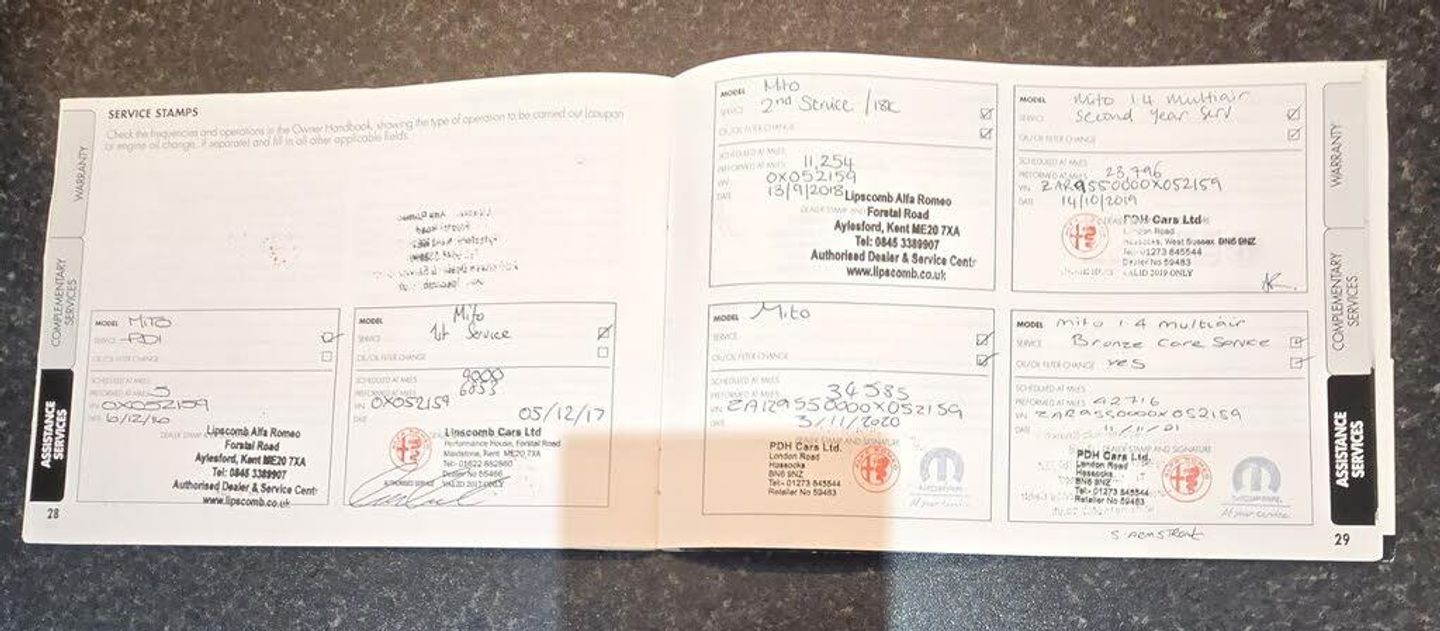 SERVICE STAMPS
Check the frequencies and operations in the Owner Handbook, showing the type of operation to be carried out (coupon
or engine oil change, if separate) and fill in all other applicable fields.
WARRANTY
COMPLEMENTARY
SERVICES
ASSISTANCE
SERVICES
MODEL MITO
SERVICE PDI
OIL/OIL FILTER CHANGE
SCHEDULED AT MILES
PERFORMED AT MILES 5
VIN 0X052159
DATE 6/12/16
Lipscomb Alfa Romeo
Forstal Road
Aylesford, Kent ME20 7XA
Tel: 0845 3389907
Authorised Dealer & Service Cent
www.lipscomb.co.uk
28
MODEL Mito
SERVICE 1st Service
OIL/OIL FILTER CHANGE
SCHEDULED AT MILES 9000
PERFORMED AT MILES 6853
VIN 0X052159
DATE 05/12/17
Lipscomb Cars Ltd
Performance House, Forstal Road
Maidstone, Kent ME20 7XA
Tel:- 01622
Dealer No
AUTHORISED SERVICE VALID 2017 ONLY
MODEL Mito
SERVICE 2nd Service / 18K
OIL/OIL FILTER CHANGE
SCHEDULED AT MILES
PERFORMED AT MILES 11,254
VIN 0X052159
DATE 13/9/2018
DEALER STAMP AND
Lipscomb Alfa Romeo
Forstal Road
Aylesford, Kent ME20 7XA
Tel: 0845 3389907
Authorised Dealer & Service Centr
www.lipscomb.co.uk
MODEL Mito 1.4 Multiair
SERVICE Second Year Serv
OIL/OIL FILTER CHANGE
SCHEDULED AT MILES
PERFORMED AT MILES 23,796
VIN ZAR9550000X052159
DATE 14/10/2019
PDH Cars Ltd
London Road
Hassocks, West Sussex BN6 9NZ
Tel:- 01273 845544
Dealer No 59483
VALID 2019 ONLY
MODEL Mito
SERVICE
OIL/OIL FILTER CHANGE
SCHEDULED AT MILES
PERFORMED AT MILES 34585
VIN 0X052159
DATE 3/11/2020
DEALER STAMP AND SIGNATURE
PDH Cars Ltd.
London Road
Hassocks
BN6 9NZ
Tel:- 01273 845544
Retailer No 59483
MODEL Mito 1.4 Multiair
SERVICE Bronze Care Service
OIL/OIL FILTER CHANGE Yes
SCHEDULED AT MILES
PERFORMED AT MILES 42716
VIN ZAR9550000X052159
DATE 11/11/21
DEALER STAMP AND SIGNATURE
PDH Cars Ltd.
London Road
Hassocks
BN6 9NZ
Tel:- 01273 845544
Retailer No 59483
S. ARMSTRONG
WARRANTY
COMPLEMENTARY
SERVICES
ASSISTANCE
SERVICES
29